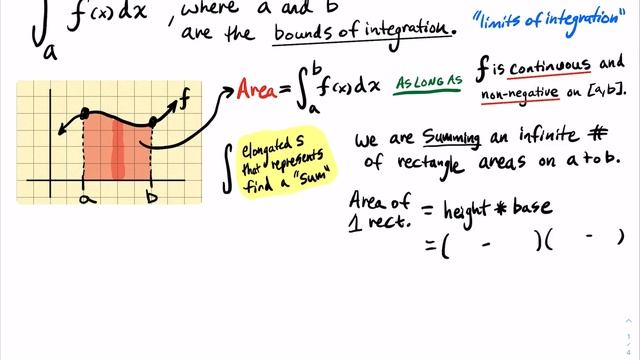 ∫a f(x)dx, where a and b
are the bounds of integration.
"limits of integration"
f
a b
Area = ∫ₐᵇ f(x)dx AS LONG AS
f is continuous and
non-negative on [a,b].
∫
elongated S
that represents
find a "sum"
we are summing an infinite #
of rectangle areas on a to b.
Area of
1 rect. = height * base
= ( - )( - )
1/4